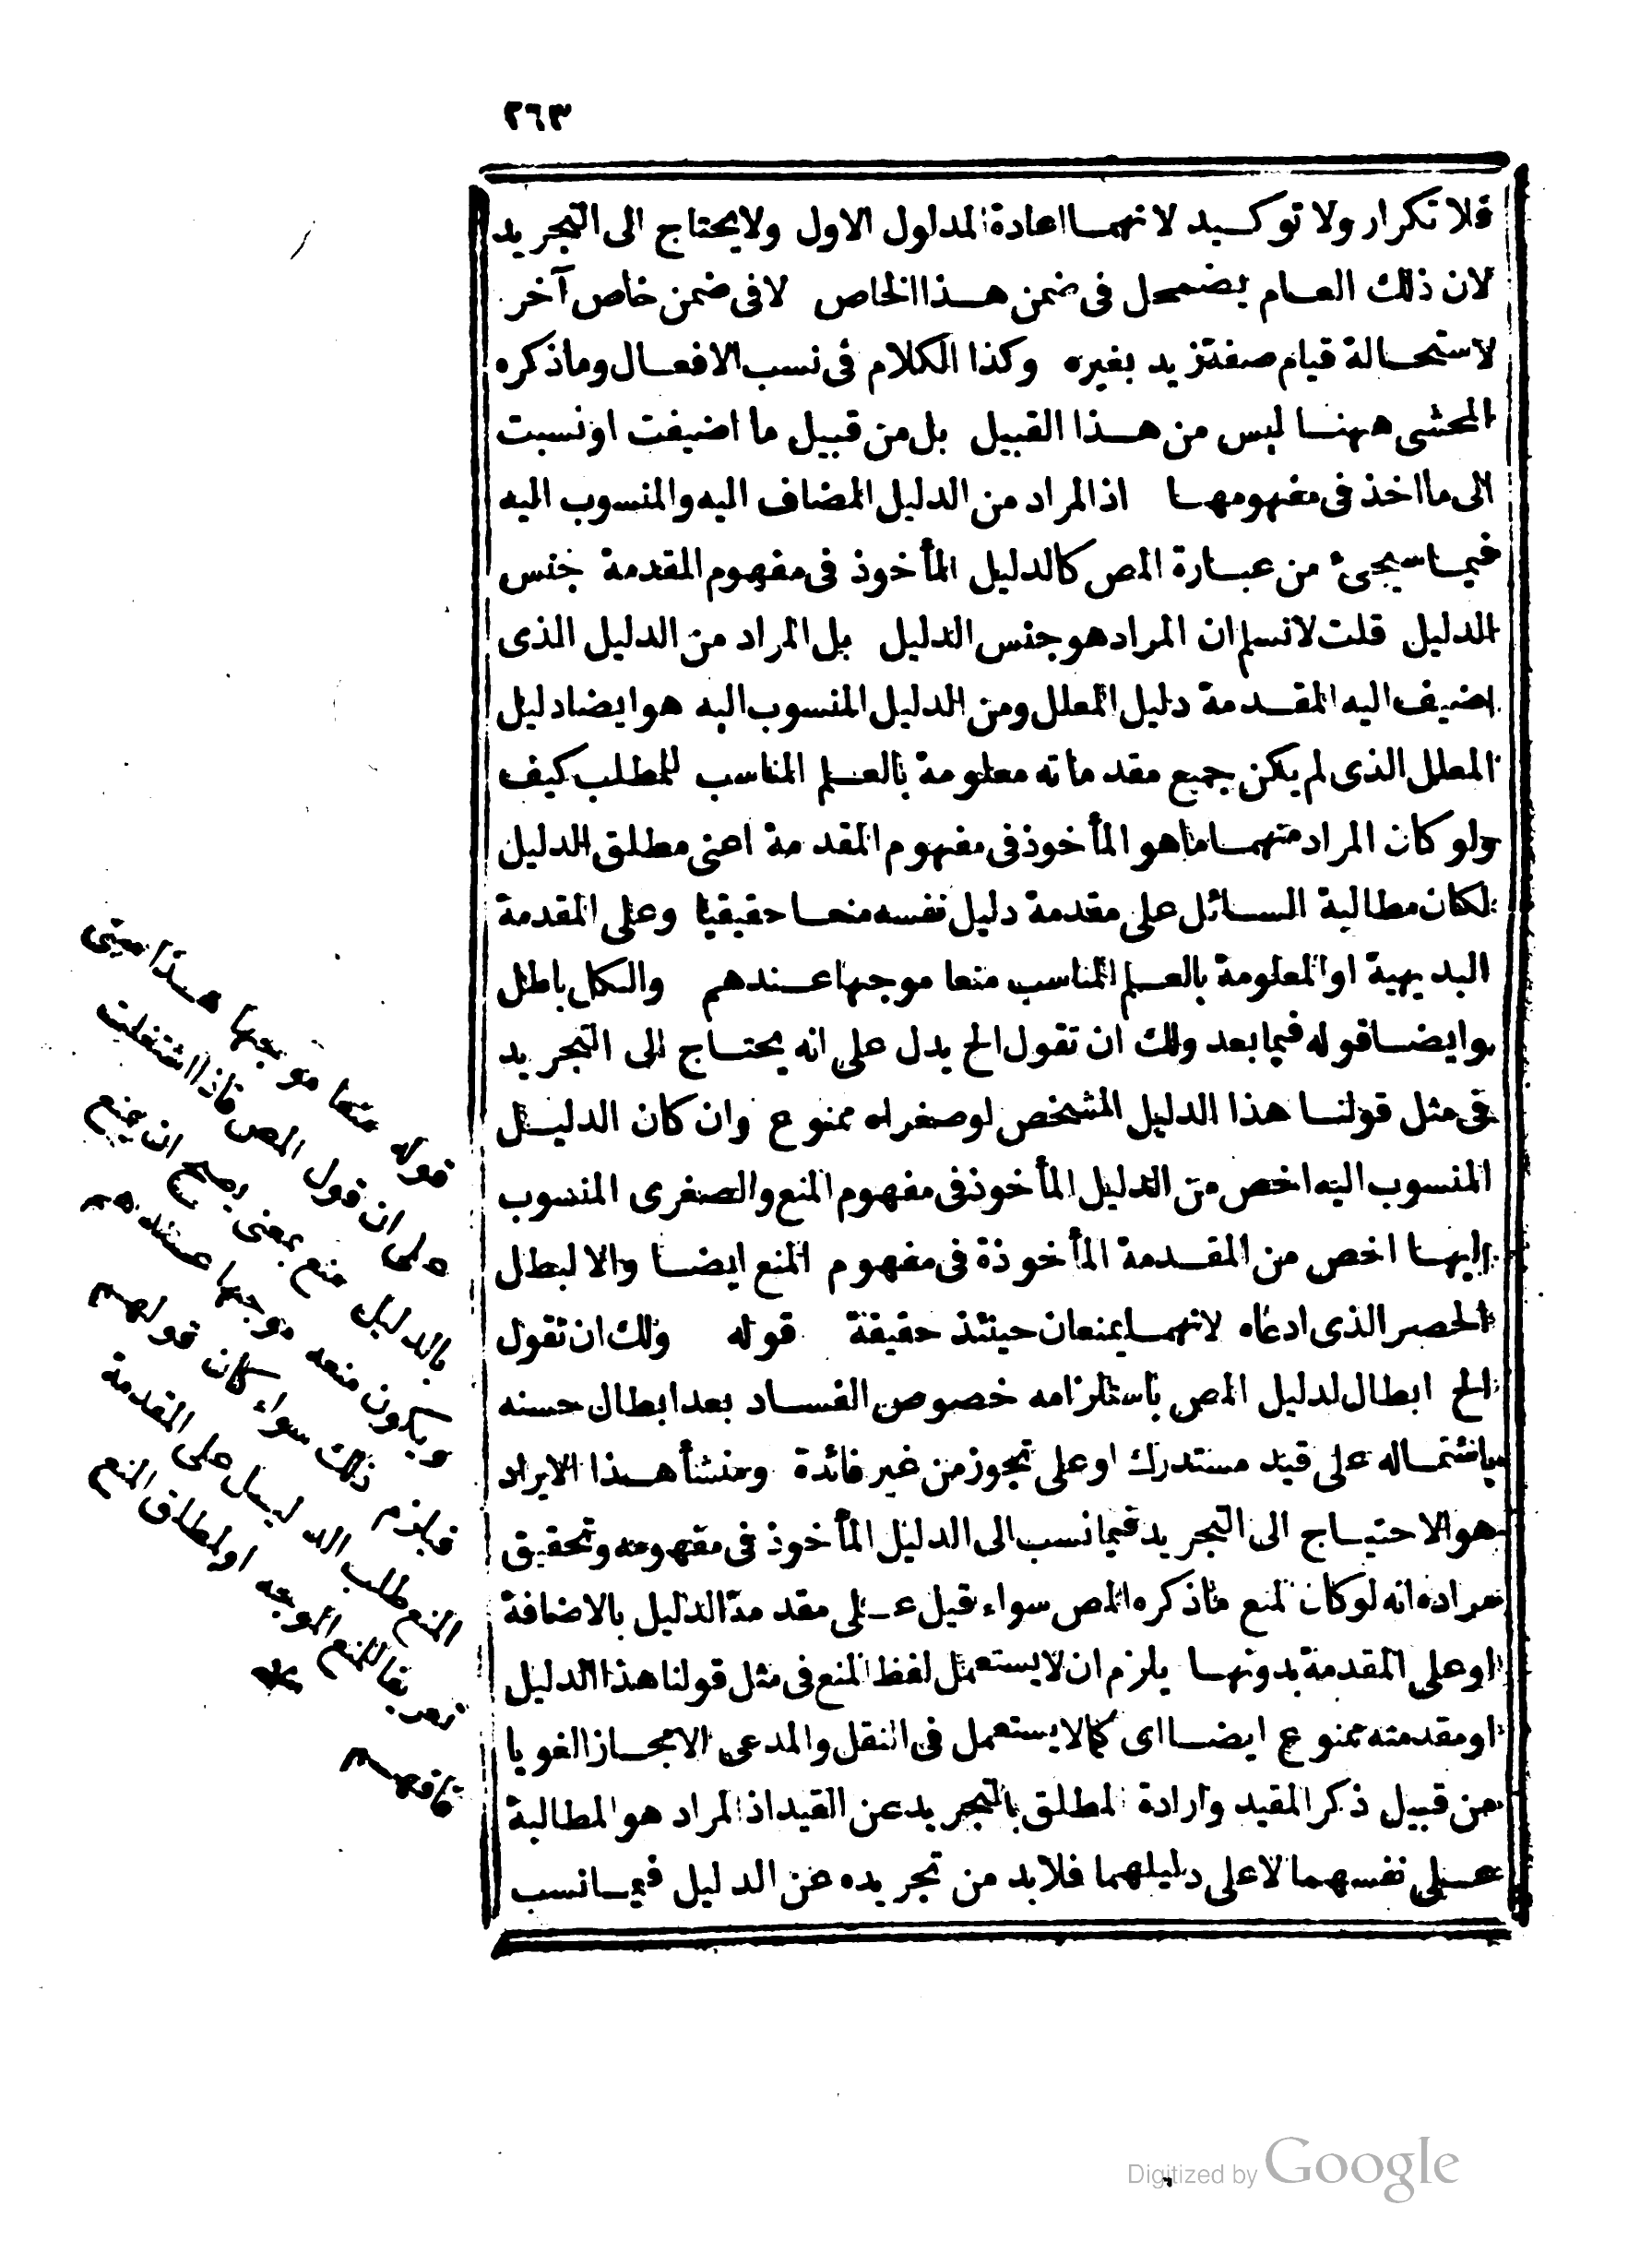 ٢٦٣
فلا تكرار ولا توكيد لانهما اعادة المدلول الاول ولا يحتاج الى التجريد
لان ذلك العام يضمحل فى ضمن هذا الخاص لا فى ضمن خاص آخر
لاستحالة قيام صفة زيد بغيره وكذا الكلام فى نسب الافعال وما ذكره
المحشى ههنا ليس من هذا القبيل بل من قبيل ما اضيفت او نسبت
الى ما اخذ فى مفهومها اذ المراد من الدليل المضاف اليه والمنسوب اليه
فيما سيجىء من عبارة المص كالدليل المأخوذ فى مفهوم المقدمة جنس
الدليل قلت لانسلم ان المراد هو جنس الدليل بل المراد من الدليل الذى
اضيف اليه المقدمة دليل المعلل ومن الدليل المنسوب اليه هو ايضا دليل
المعلل الذى لم يكن جميع مقدماته معلومة بالعلم المناسب للمطلب كيف
ولو كان المراد منهما ما هو المأخوذ فى مفهوم المقدمة اعنى مطلق الدليل
لكان مطالبة السائل على مقدمة دليل نفسه منعا حقيقيا وعلى المقدمة
البديهية او المعلومة بالعلم المناسب منعا موجها عندهم والكل باطل
وايضا قوله فيما بعد ولك ان تقول الخ يدل على انه يحتاج الى التجريد
فى مثل قولنا هذا الدليل المشخص او صغراه ممنوع وان كان الدليل
المنسوب اليه اخص من الدليل المأخوذ فى مفهوم المنع والصغرى المنسوب
اليها اخص من المقدمة المأخوذة فى مفهوم المنع ايضا والا لبطل
الحصر الذى ادعاه لانهما يمنعان حينئذ حقيقة قوله ولك ان تقول
الخ ابطال لدليل المص باستلزامه خصوص الفساد بعد ابطال حسنه
باشتماله على قيد مستدرك او على تجوز من غير فائدة ومنشأ هذا الايراد
هو الاحتياج الى التجريد فيما نسب الى الدليل المأخوذ فى مفهومه وتحقيق
مراده انه لو كان المنع ما ذكره المص سواء قيل على مقدمة الدليل بالاضافة
او على المقدمة بدونها يلزم ان لا يستعمل لفظ المنع فى مثل قولنا هذا الدليل
او مقدمته ممنوع ايضا اى كما لا يستعمل فى النقل والمدعى الا مجازا لغويا
من قبيل ذكر المقيد وارادة المطلق بالتجريد عن القيد اذ المراد هو المطالبة
على نفسهما لا على دليلهما فلا بد من تجريده عن الدليل فيما نسب
قوله منعا موجها هذا مبنى
على ان قول المص فاذا اشتغلت
بالدليل منع بمعنى يصح ان يمنع
ويكون منعه موجها عندهم
فيلزم ذلك سواء كان قولهم
المنع طلب الدليل على المقدمة
تعريفا للمنع الموجه او لمطلق المنع
فافهم
منه
Digitized by Google